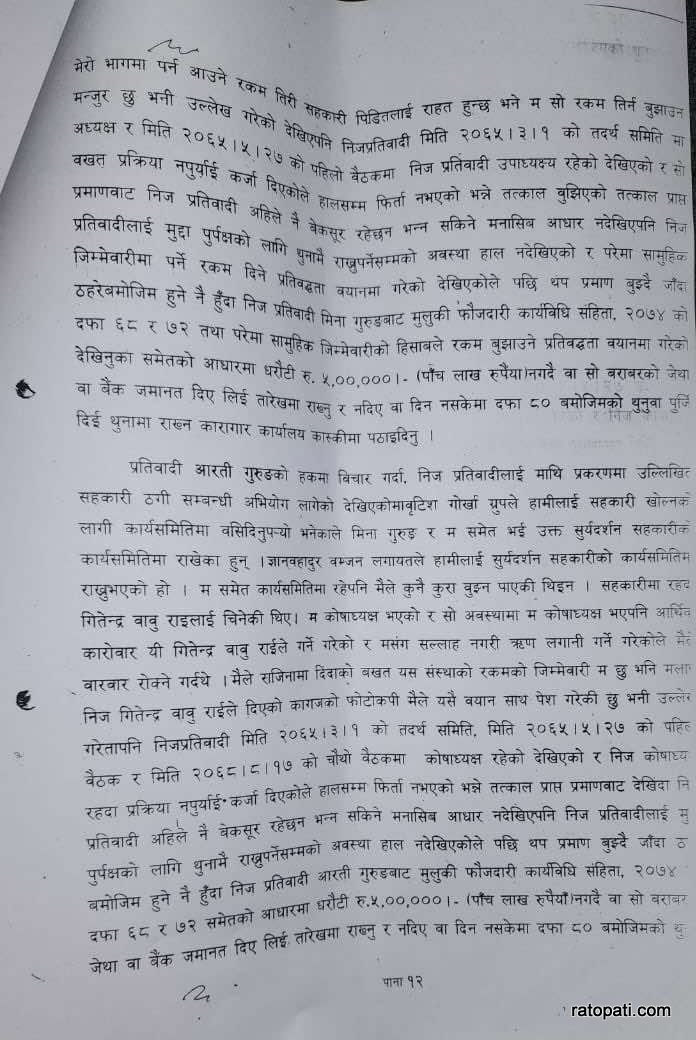 मेरो भागमा पर्न आउने रकम तिरी सहकारी पिडितलाई राहत हुन्छ भने म सो रकम तिर्न बुझाउन
मन्जुर छु भनी उल्लेख गरेको देखिएपनि निजप्रतिवादी मिति २०६५।३।१ को तदर्थ समिति मा
अध्यक्ष र मिति २०६५।५।२७ को पहिलो बैठकमा निज प्रतिवादी उपाध्यक्ष्य रहेको देखिएको र सो
बखत प्रक्रिया नपुर्याई कर्जा दिएकोले हालसम्म फिर्ता नभएको भन्ने तत्काल बुझिएको तत्काल प्राप्त
प्रमाणवाट निज प्रतिवादी अहिले नै बेकसूर रहेछन भन्न सकिने मनासिब आधार नदेखिएपनि निज
प्रतिवादीलाई मुद्दा पुर्पक्षको लागि थुनामै राख्नुपर्नेसम्मको अवस्था हाल नदेखिएको र परेमा सामुहिक
जिम्मेवारीमा पर्ने रकम दिने प्रतिवद्धता वयानमा गरेको देखिएकोले पछि थप प्रमाण बुझ्दै जाँदा
ठहरेबमोजिम हुने नै हुँदा निज प्रतिवादी मिना गुरुङबाट मुलुकी फौजदारी कार्यविधि संहिता, २०७४ को
दफा ६८ र ७२ तथा परेमा सामुहिक जिम्मेवारीको हिसाबले रकम बुझाउने प्रतिवद्धता वयानमा गरेको
देखिनुका समेतको आधारमा धरौटी रु. ५,००,०००।- (पाँच लाख रुपैंया)नगदै वा सो बराबरको जेथा
वा बैंक जमानत दिए लिई तारेखमा राख्नु र नदिए वा दिन नसकेमा दफा ८० बमोजिमको थुनुवा पुर्जि
दिई थुनामा राख्न कारागार कार्यालय कास्कीमा पठाइदिनु ।
प्रतिवादी आरती गुरुङको हकमा बिचार गर्दा, निज प्रतिवादीलाई माथि प्रकरणमा उल्लिखित
सहकारी ठगी सम्बन्धी अभियोग लागेको देखिएकोमावृटिश गोर्खा ग्रुपले हामीलाई सहकारी खोल्नको
लागी कार्यसमितिमा वसिदिनुपर्‍यो भनेकाले मिना गुरुङ र म समेत भई उक्त सुर्यदर्शन सहकारीक
कार्यसमितिमा राखेका हुन् ।ज्ञानवहादुर वम्जन लगायतले हामीलाई सुर्यदर्शन सहकारीको कार्यसमितिम
राख्नुभएको हो । म समेत कार्यसमितिमा रहेपनि मैले कुनै कुरा बुझ्न पाएकी थिइन । सहकारीमा रहद
गितेन्द्र वावु राइलाई चिनेकी थिए। म कोषाध्यक्ष भएको र सो अवस्थामा म कोषाध्यक्ष भएपनि आर्थिक
कारोवार यी गितेन्द्र वावु राईले गर्ने गरेको र मसंग सल्लाह नगरी ऋण लगानी गर्ने गरेकोले मैले
वारवार रोक्ने गर्दथे ।मैले राजिनामा दिंदाको बखत यस संस्थाको रकमको जिम्मेवारी म छु भनि मला
निज गितेन्द्र वावु राईले दिएको कागजको फोटोकपी मैले यसै वयान साथ पेश गरेकी छु भनी उल्लेख
गरेतापनि निजप्रतिवादी मिति २०६५।३।१ को तदर्थ समिति, मिति २०६५।५।२७ को पहिल
बैठक र मिति २०६८।८।१७ को चौथो बैठकमा कोषाध्यक्ष रहेको देखिएको र निज कोषाध्य
रहदा प्रक्रिया नपुर्याई कर्जा दिएकोले हालसम्म फिर्ता नभएको भन्ने तत्काल प्राप्त प्रमाणवाट देखिदा नि
प्रतिवादी अहिले नै बेकसूर रहेछन भन्न सकिने मनासिब आधार नदेखिएपनि निज प्रतिवादीलाई मु
पुर्पक्षको लागि थुनामै राख्नुपर्नेसम्मको अवस्था हाल नदेखिएकोले पछि थप प्रमाण बुझ्दै जाँदा ठ
बमोजिम हुने नै हुँदा निज प्रतिवादी आरती गुरुङबाट मुलुकी फौजदारी कार्यविधि संहिता, २०७४
दफा ६८ र ७२ समेतको आधारमा धरौटी रु.५,००,०००।- (पाँच लाख रुपैयाँ)नगदै वा सो बराबर
जेथा वा बैंक जमानत दिए लिई तारेखमा राख्नु र नदिए वा दिन नसकेमा दफा ८० बमोजिमको थु
पाना १२
ratopati.com